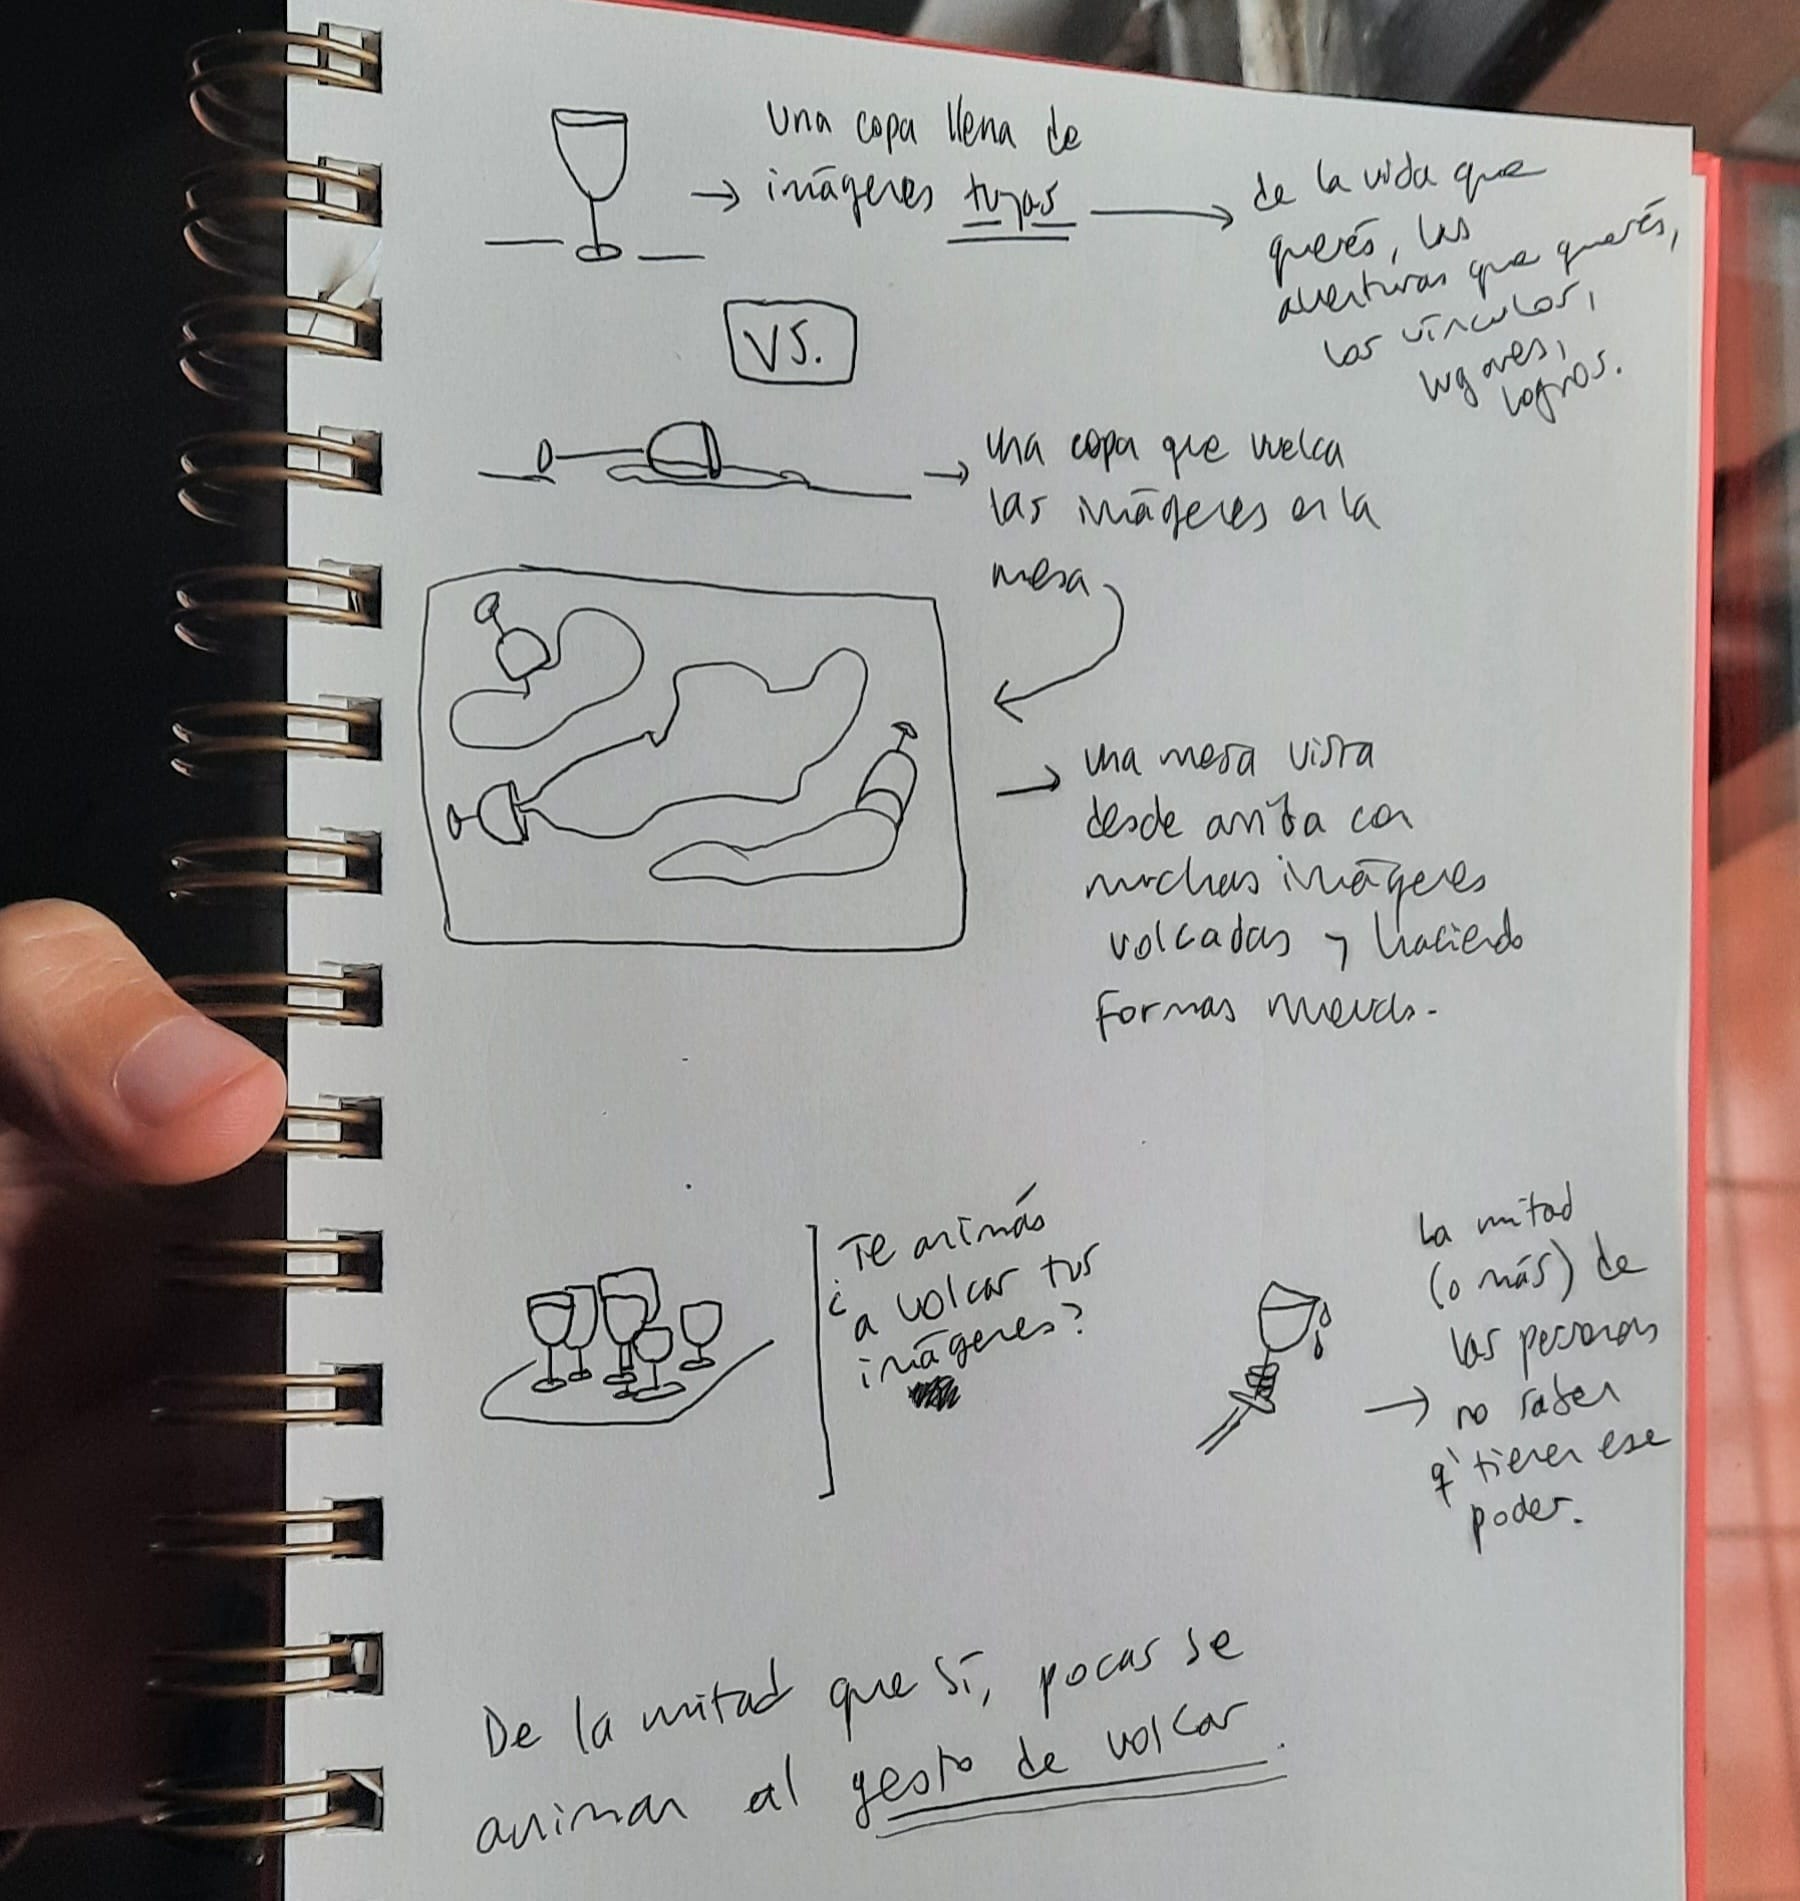 una copa llena de
imágenes tuyas
de la vida que
querés, las
aventuras que querés,
los vínculos,
lugares,
logros.
VS.
una copa que vuelca
las imágenes en la
mesa
una mesa vista
desde arriba con
muchas imágenes
volcadas y haciendo
formas nuevas.
¿Te animás
a volcar tus
imágenes?
La mitad
(o más) de
las personas
no saben
q' tienen ese
poder.
De la mitad que sí, pocas se
animan al gesto de volcar.